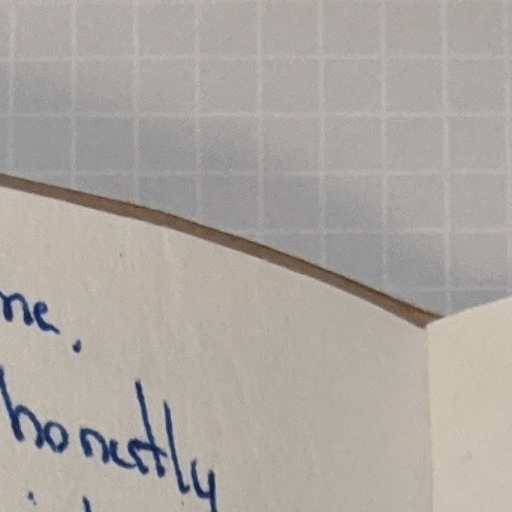 me.
honestly